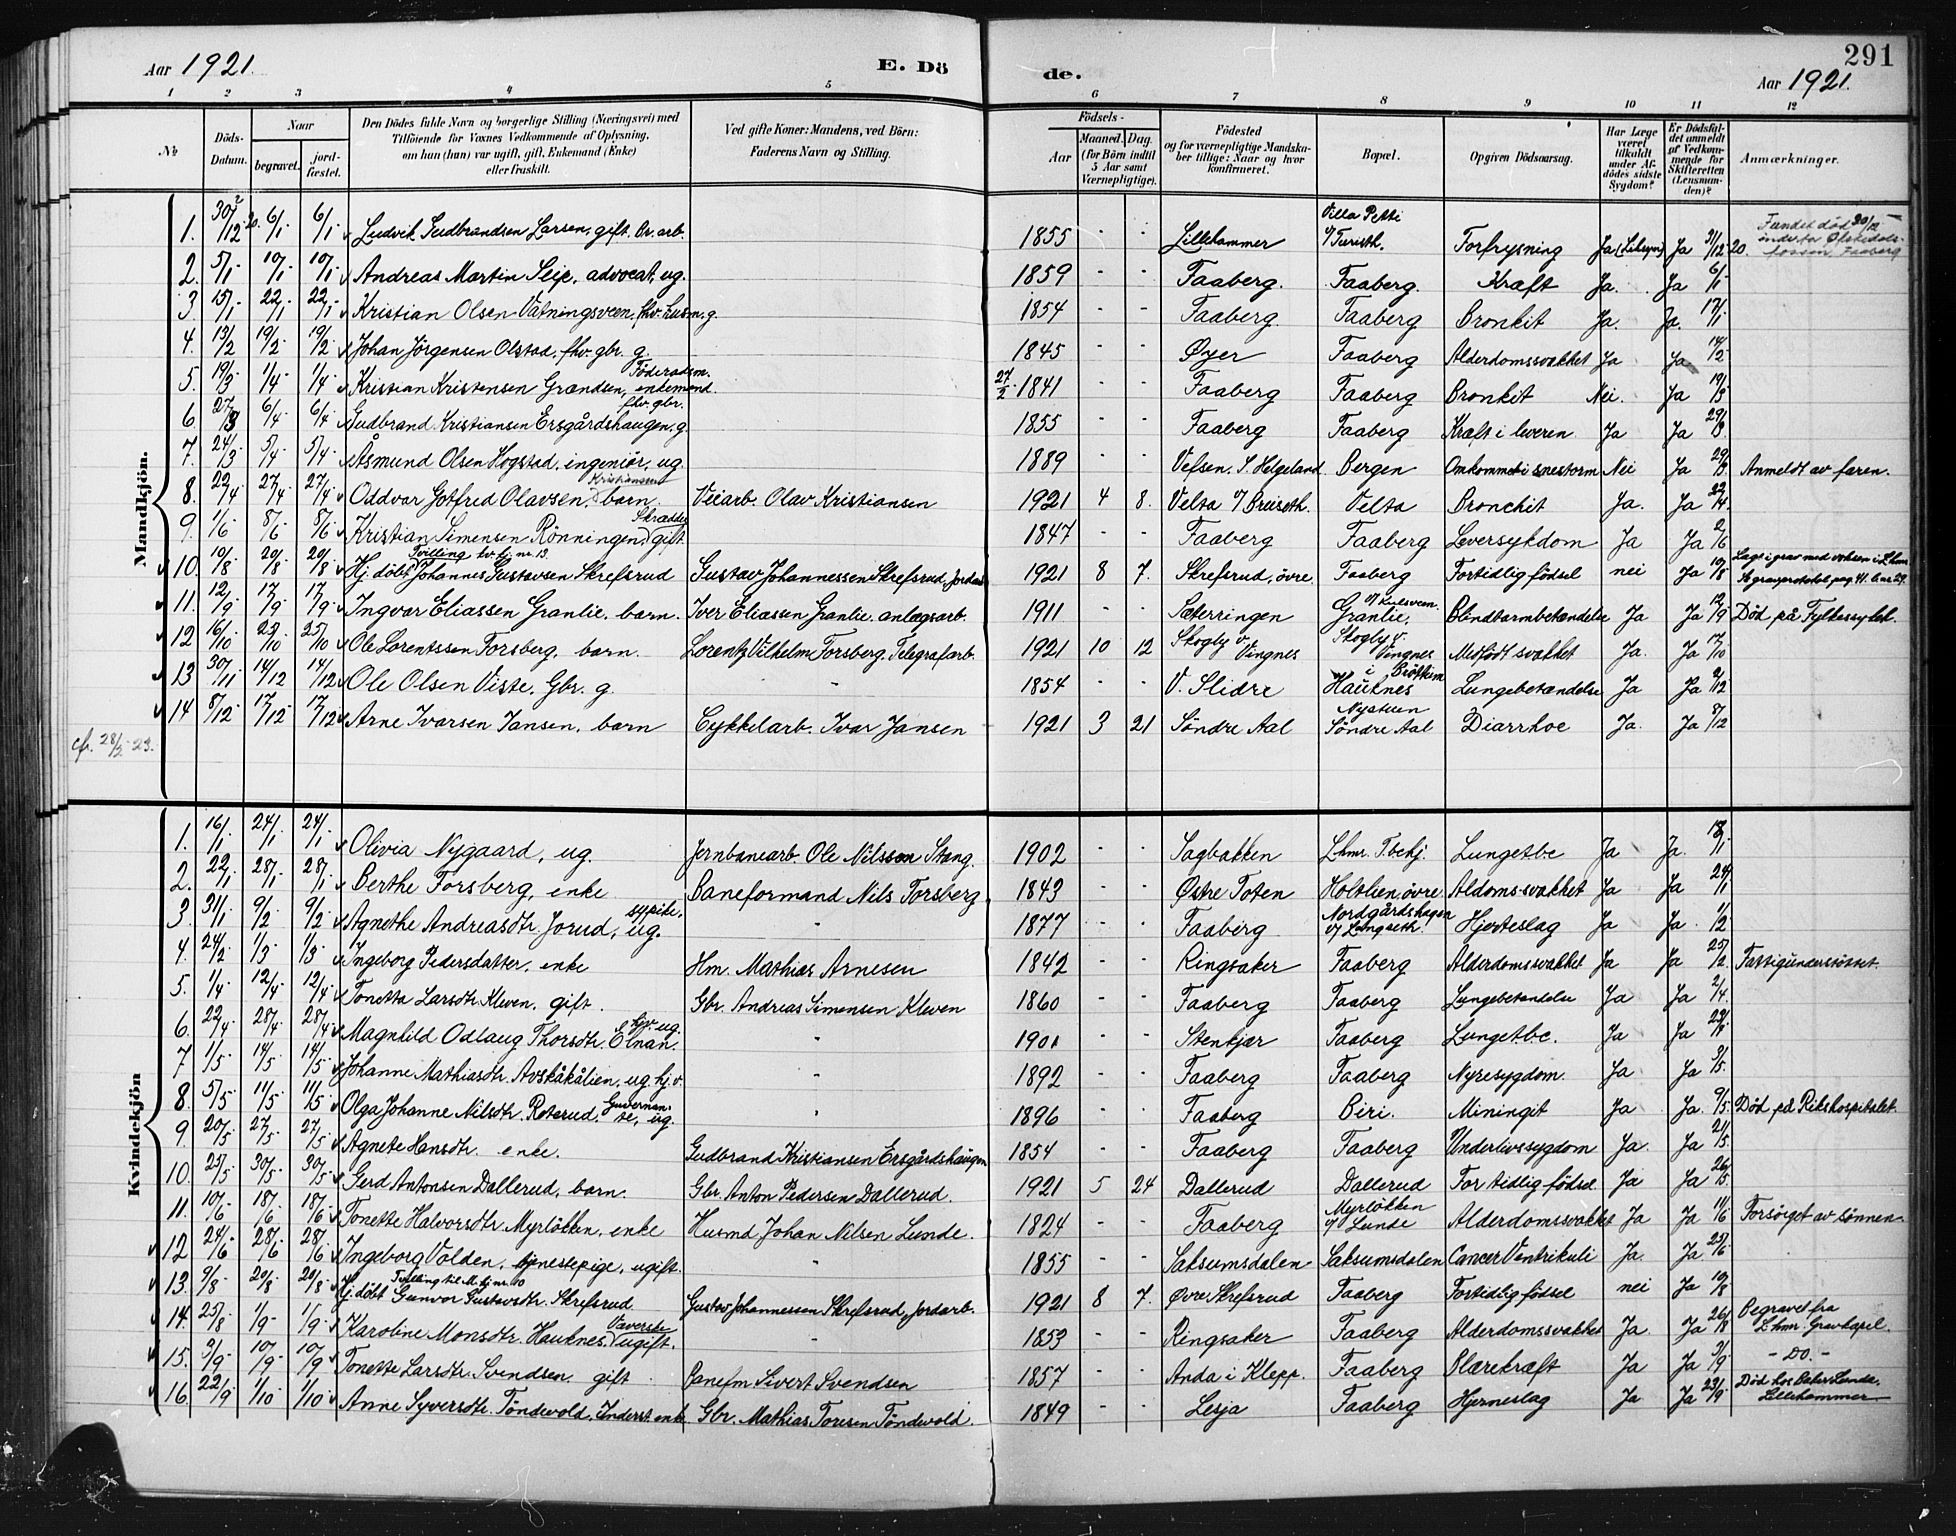 291
Aar 1921. E. Dö de. Aar 1921.
1 2 3 4 5 6 7 8 9 10 11 12
№ Döds-Datum. Naar begravet. jord-fæstet. Den Dödes fulde Navn og borgerlige Stilling (Næringsvei) med Tilföiende for Voxnes Vedkommende af Oplysning, om han (hun) var ugift, gift, Enkemand (Enke) eller fraskilt. Ved gifte Koner: Mandens, ved Börn: Faderens Navn og Stilling. Födsels- Aar Maaned. Dag. (for Börn indtil 5 Aar samt Værnepligtige). Födested og for værnepligtige Mandskaber tillige: Naar og hvor konfirmeret. Bopæl. Opgiven Dödsaarsag. Har Læge været tilkaldt under Afdödes sidste Sygdom? Er Dödsfaldet anmeldt af Vedkommende for Skifteretten (Lensmanden)? Anmærkninger.
Mandkjön.
1. 30/12 20. 6/1 6/1 Ludvik Gudbrandsen Larsen, gift. Br. arb. 1855 - - Lillehammer Villa Petti v/ Turisth. Forfrysning Ja (Liksyn) Ja 31/12 20. Fundet død 30/12
2. 5/1 10/1 10/1 Andreas Martin Seip, advocat, ug. 1859 - - Faaberg. Faaberg. Kræft Ja. Ja 6/1
3. 15/1 22/1 22/1 Kristian Olsen Vatningsveen, fhv. husm. g. 1854 - - Faaberg. Faaberg Bronkit Ja. Ja. 17/1
4. 13/2 19/2 19/2 Johan Jörgensen Olstad, fhv. gbr. g. 1845 - - Øyer Faaberg Alderdomssvakhet Ja Ja 14/2
5. 19/3 1/4 1/4 Kristian Kristensen Grandsen, Föderaadsm. enkemand. 27/2 1841 - - Faaberg Faaberg Bronkit Nei. Ja 19/3
6. 27/3 6/4 6/4 Gudbrand Kristiansen Ersgårdshaugen, fhv. gbr. g. 1855 - - Faaberg Faaberg Kræft i leveren Ja Ja 29/3
7. 24/3 5/4 5/4 Åsmund Olsen Hogstad, ingeniør, ug. 1889 - - Vefsen, S. Helgeland Bergen Omkommet i snestorm Nei Ja 29/3 Anmeldt av faren.
8. 22/4 27/4 27/4 Oddvar Gotfred Olavsen, Kristiansen barn. Veiarb. Olav Kristiansen 1921 4 8. Velta v/ Bruseth. Velta Bronchit Ja. Ja 22/4
9. 1/6 8/6 8/6 Kristian Simensen Rönningen, Skrædder gift. 1847 - - Faaberg Faaberg Leversykdom Ja Ja 2/6
10. 19/8 20/8 20/8 Hj. döbt Tvilling kv. kj. nr. 13 Johannes Gustavsen Skrefsrud Gustav Johannessen Skrefsrud, Jordarb. 1921 8 7. Skrefsrud, övre. Faaberg Fortidlig födsel nei Ja 10/8
11. 12/9 17/9 17/9 Ingvar Eliassen Granlie, barn. Iver Eliassen Granlie, anlægsarb. 1911 - - Sæterringen Granlie, Blindtarmbetændelse Ja Ja 12/9 Död på Fylkessykeh.
12 16/10 25/10 25/10 Ole Lorentssen Forsberg, barn. Lorentz Vilhelm Forsberg, Telegrafarb. 1921 10 12 Skogly v. Vingnes Skogly v. Vingnes Medfödt svakhet Ja. Ja 17/10
13 30/11 14/12 14/12 Ole Olsen Viste, Gbr. g. " 1854 - - V. Slidre Hauknes i Bröttum Lungebetændelse Ja Ja 2/12
14 8/12 17/12 17/12 Arne Ivarsen Jansen, barn Cykkelarb. Ivar Jansen 1921 3 21 Söndre Aal Nystuen Söndre Aal Diarrhoe Ja. Ja 8/12
cfr. 28/2-23.
Kvindekjön
1. 16/1 24/1 24/1 Olivia Nygaard, ug. Jernbanearb. Ole Nilsson Stang. 1902 - - Sagbakken Lhmr. Tbchj. Lungetbc Ja Ja. 18/1
2. 22/1 28/1 28/1 Berthe Forsberg, enke Baneformand Nils Forsberg 1843 - - Østre Toten Holtlien övre Aldomssvakhet Ja Ja 24/1
3. 31/1 9/2 9/2 Agnethe Andreasdtr. Jorud, sypike. ug. " 1877 - - Faaberg Nordgårdshagen v/ Langseth Hjerteslag Ja Ja. 1/2
4. 24/2 1/3 1/3 Ingeborg Pedersdatter, enke Hm. Mathias Arnesen 1842 - - Ringsaker Faaberg Alderdomssvakhet Ja Ja 25/2 Fattigunderstöttet.
5. 1/4 12/4 12/4 Tonetta Larsdtr. Kleven. gift. Gbr. Andreas Simensen Kleven 1860 - - Faaberg Faaberg Lungebetændelse Ja Ja 2/4.
6. 22/4 28/4 28/4 Magnhild Odlaug Thorsdtr. Elnan. hjv. ug. " 1901 - - Stenkjær Faaberg Lungetbc. Ja Ja 23/4
7 1/5 14/5 14/5 Johanne Mathiasdtr. Avskåkålien, ug. hj. v. " 1892 - - Faaberg Faaberg Nyresygdom. Ja Ja 3/5.
8. 5/5 11/5 11/5 Olga Johanne Nilsdtr. Roterud. Guvernante, ug. " 1896 - - Faaberg Biri. Miningit Ja Ja. 9/5. Död på Rikshospitalet.
9. 20/5 27/5 27/5 Agnete Hansdtr. enke. Gudbrand Kristiansen Ersgårdshaugen 1854 - - Faaberg Faaberg Underlivssygdom Ja. Ja 21/5.
10. 25/5 30/5 30/5 Gerd Antonsen Dallerud, barn. Gbr. Anton Pedersen Dallerud. 1921 5 24 Dallerud Dallerud For tidlig födsel Ja Ja 26/5.
11. 10/6 18/6 18/6 Tonette Halvorsdtr. Myrlökken. enke Husmd. Johan Nilsen Lunde. 1824 - - Faaberg Myrlökken v/ Lunde Alderdomssvakhet Ja Ja 11/6 Forsörget av sönnen.
12 24/6 28/6 28/6 Ingeborg Volden, tjenestepige, ugift. " 1855 - - Saksumsdalen Saksumsdalen Cancer Ventrikuli Ja. Ja 25/6
13. 9/8 20/8 20/8 Hj. döbt Tvilling til M. kj. nr. 10 Gunvor Gustavsdtr. Skrefsrud. Gustav Johannessen Skrefsrud, Jordarb. 1921 8 7. Øvre Skrefsrud Faaberg Fortidlig födsel nei Ja 10/8
14. 25/8 1/9 1/9 Karoline Monsdtr. Hauknes. Væverske ugift. " 1853 - - Ringsaker Faaberg Alderdomssvakhet Ja. Ja 26/8 Begravet fra Lhmr. Gravkapel.
15. 3/9 10/9 10/9 Tonette Larsdtr. Svendsen. gift. Banefm Sivert Svendsen 1857 - - Anda i Klepp. Faaberg Blærekræft Ja Ja 3/9. - Do. -
16. 22/9 1/10 1/10 Anne Syversdtr. Töndevold, Inderst. enke Gbr. Mathias Toresen Töndevold. 1849 - - Lesja Faaberg Hjerneslag Ja Ja 23/9. Död hos Baker Lunde, Lillehammer